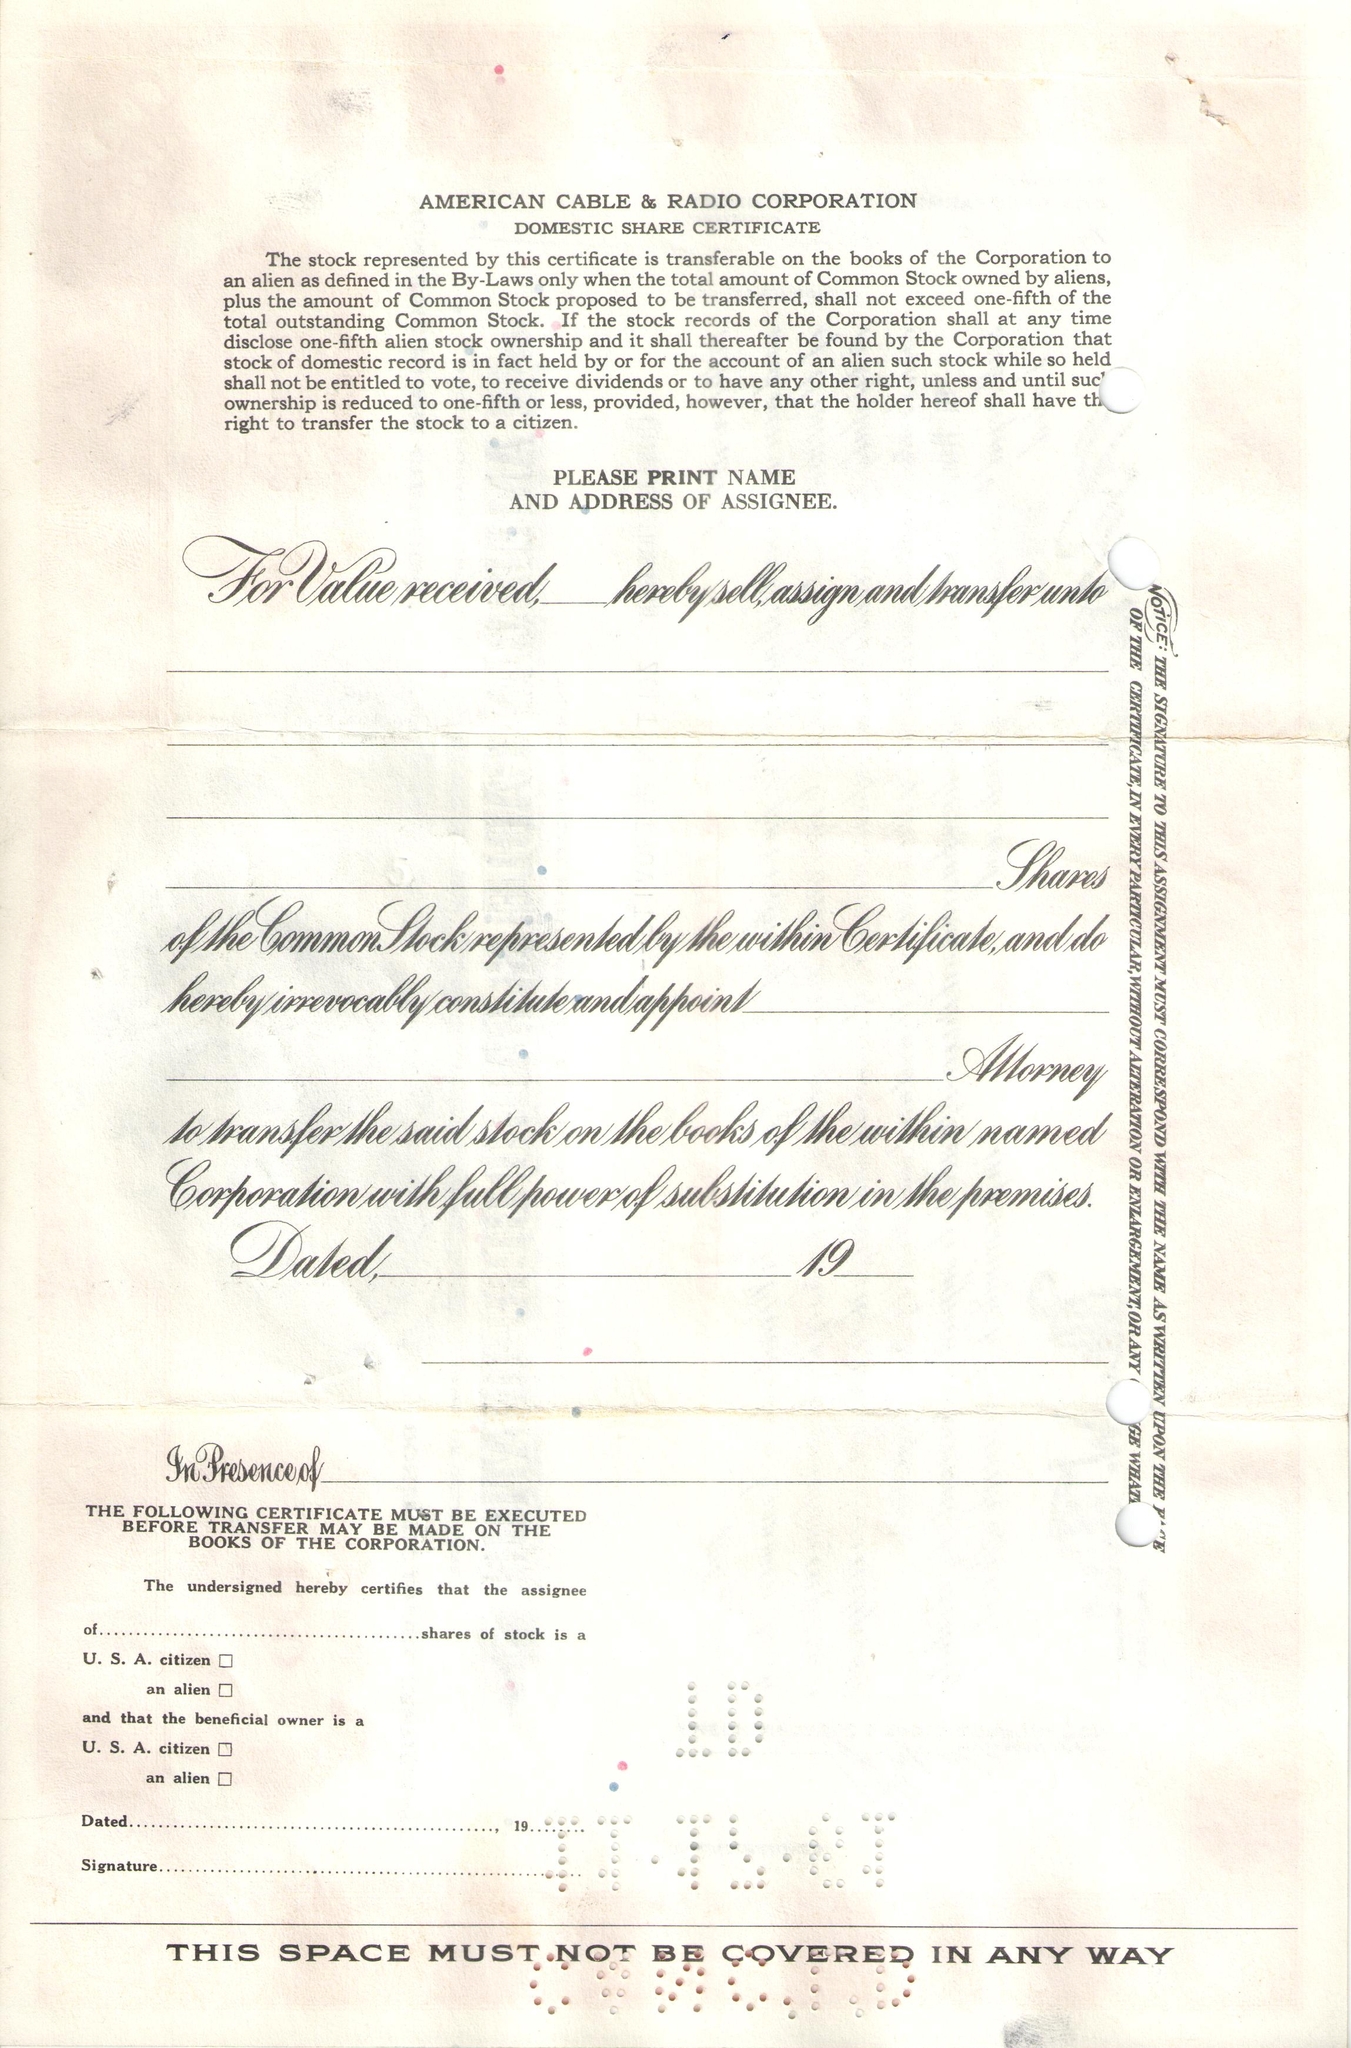 AMERICAN CABLE & RADIO CORPORATION
DOMESTIC SHARE CERTIFICATE
The stock represented by this certificate is transferable on the books of the Corporation to
an alien as defined in the By-Laws only when the total amount of Common Stock owned by aliens,
plus the amount of Common Stock proposed to be transferred, shall not exceed one-fifth of the
total outstanding Common Stock. If the stock records of the Corporation shall at any time
disclose one-fifth alien stock ownership and it shall thereafter be found by the Corporation that
stock of domestic record is in fact held by or for the account of an alien such stock while so held
shall not be entitled to vote, to receive dividends or to have any other right, unless and until such
ownership is reduced to one-fifth or less, provided, however, that the holder hereof shall have the
right to transfer the stock to a citizen.
PLEASE PRINT NAME
AND ADDRESS OF ASSIGNEE.
For Value received, hereby sell, assign and transfer unto
Shares
of the Common Stock represented by the within Certificate, and do
hereby irrevocably constitute and appoint
Attorney
to transfer the said stock on the books of the within named
Corporation with full power of substitution in the premises.
Dated, 19
In Presence of
NOTICE: THE SIGNATURE TO THIS ASSIGNMENT MUST CORRESPOND WITH THE NAME AS WRITTEN UPON THE FACE
OF THE CERTIFICATE, IN EVERY PARTICULAR, WITHOUT ALTERATION OR ENLARGEMENT, OR ANY
THE FOLLOWING CERTIFICATE MUST BE EXECUTED
BEFORE TRANSFER MAY BE MADE ON THE
BOOKS OF THE CORPORATION.
The undersigned hereby certifies that the assignee
of........................................shares of stock is a
U. S. A. citizen
an alien
and that the beneficial owner is a
U. S. A. citizen
an alien
Dated............................................., 19........
Signature....................................................
THIS SPACE MUST NOT BE COVERED IN ANY WAY